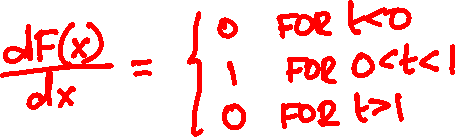 dF(x)/dx = { 0 FOR t<0
1 FOR 0<t<1
0 FOR t>1